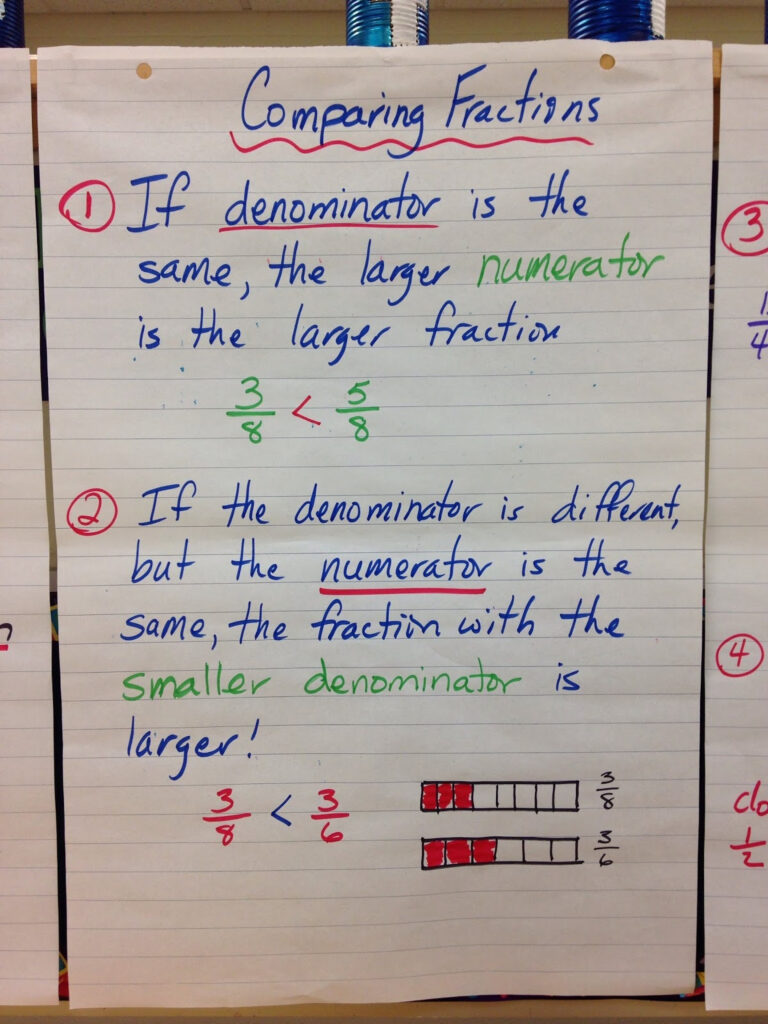 Comparing Fractions
① If denominator is the
same, the larger numerator
is the larger fraction
3/8 < 5/8
② If the denominator is different,
but the numerator is the
same, the fraction with the
smaller denominator is
larger!
3/8 < 3/6
3/8
3/6
③
④
1/2